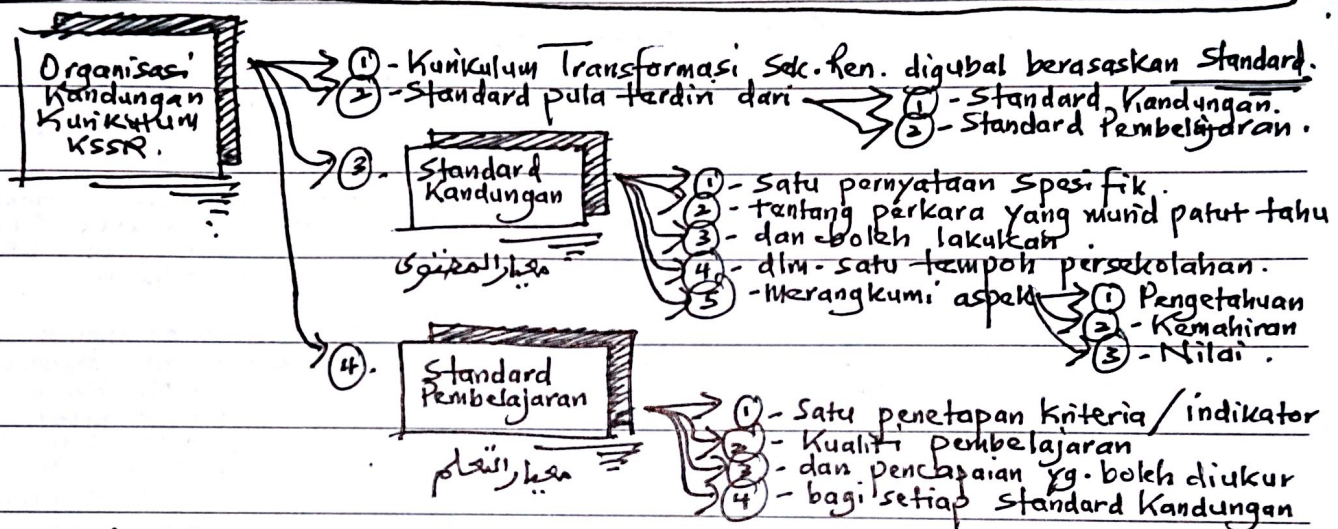 Organisasi
Kandungan
Kurikulum
KSSR.
① - Kurikulum Transformasi Sek. Ren. digubal berasaskan Standard.
② - Standard pula terdiri dari
① - Standard Kandungan.
② - Standard Pembelajaran.
③. Standard
Kandungan
معيار المحتوى
① - Satu pernyataan Spesifik.
② - tentang perkara yang murid patut tahu
③ - dan boleh lakukan.
④ - dlm. satu tempoh persekolahan.
⑤ - Merangkumi aspek
① Pengetahuan
② - Kemahiran
③ - Nilai.
④. Standard
Pembelajaran
معيار التعلم
① - Satu penetapan kriteria / indikator
② - Kualiti pembelajaran
③ - dan pencapaian yg. boleh diukur
④ - bagi setiap Standard Kandungan